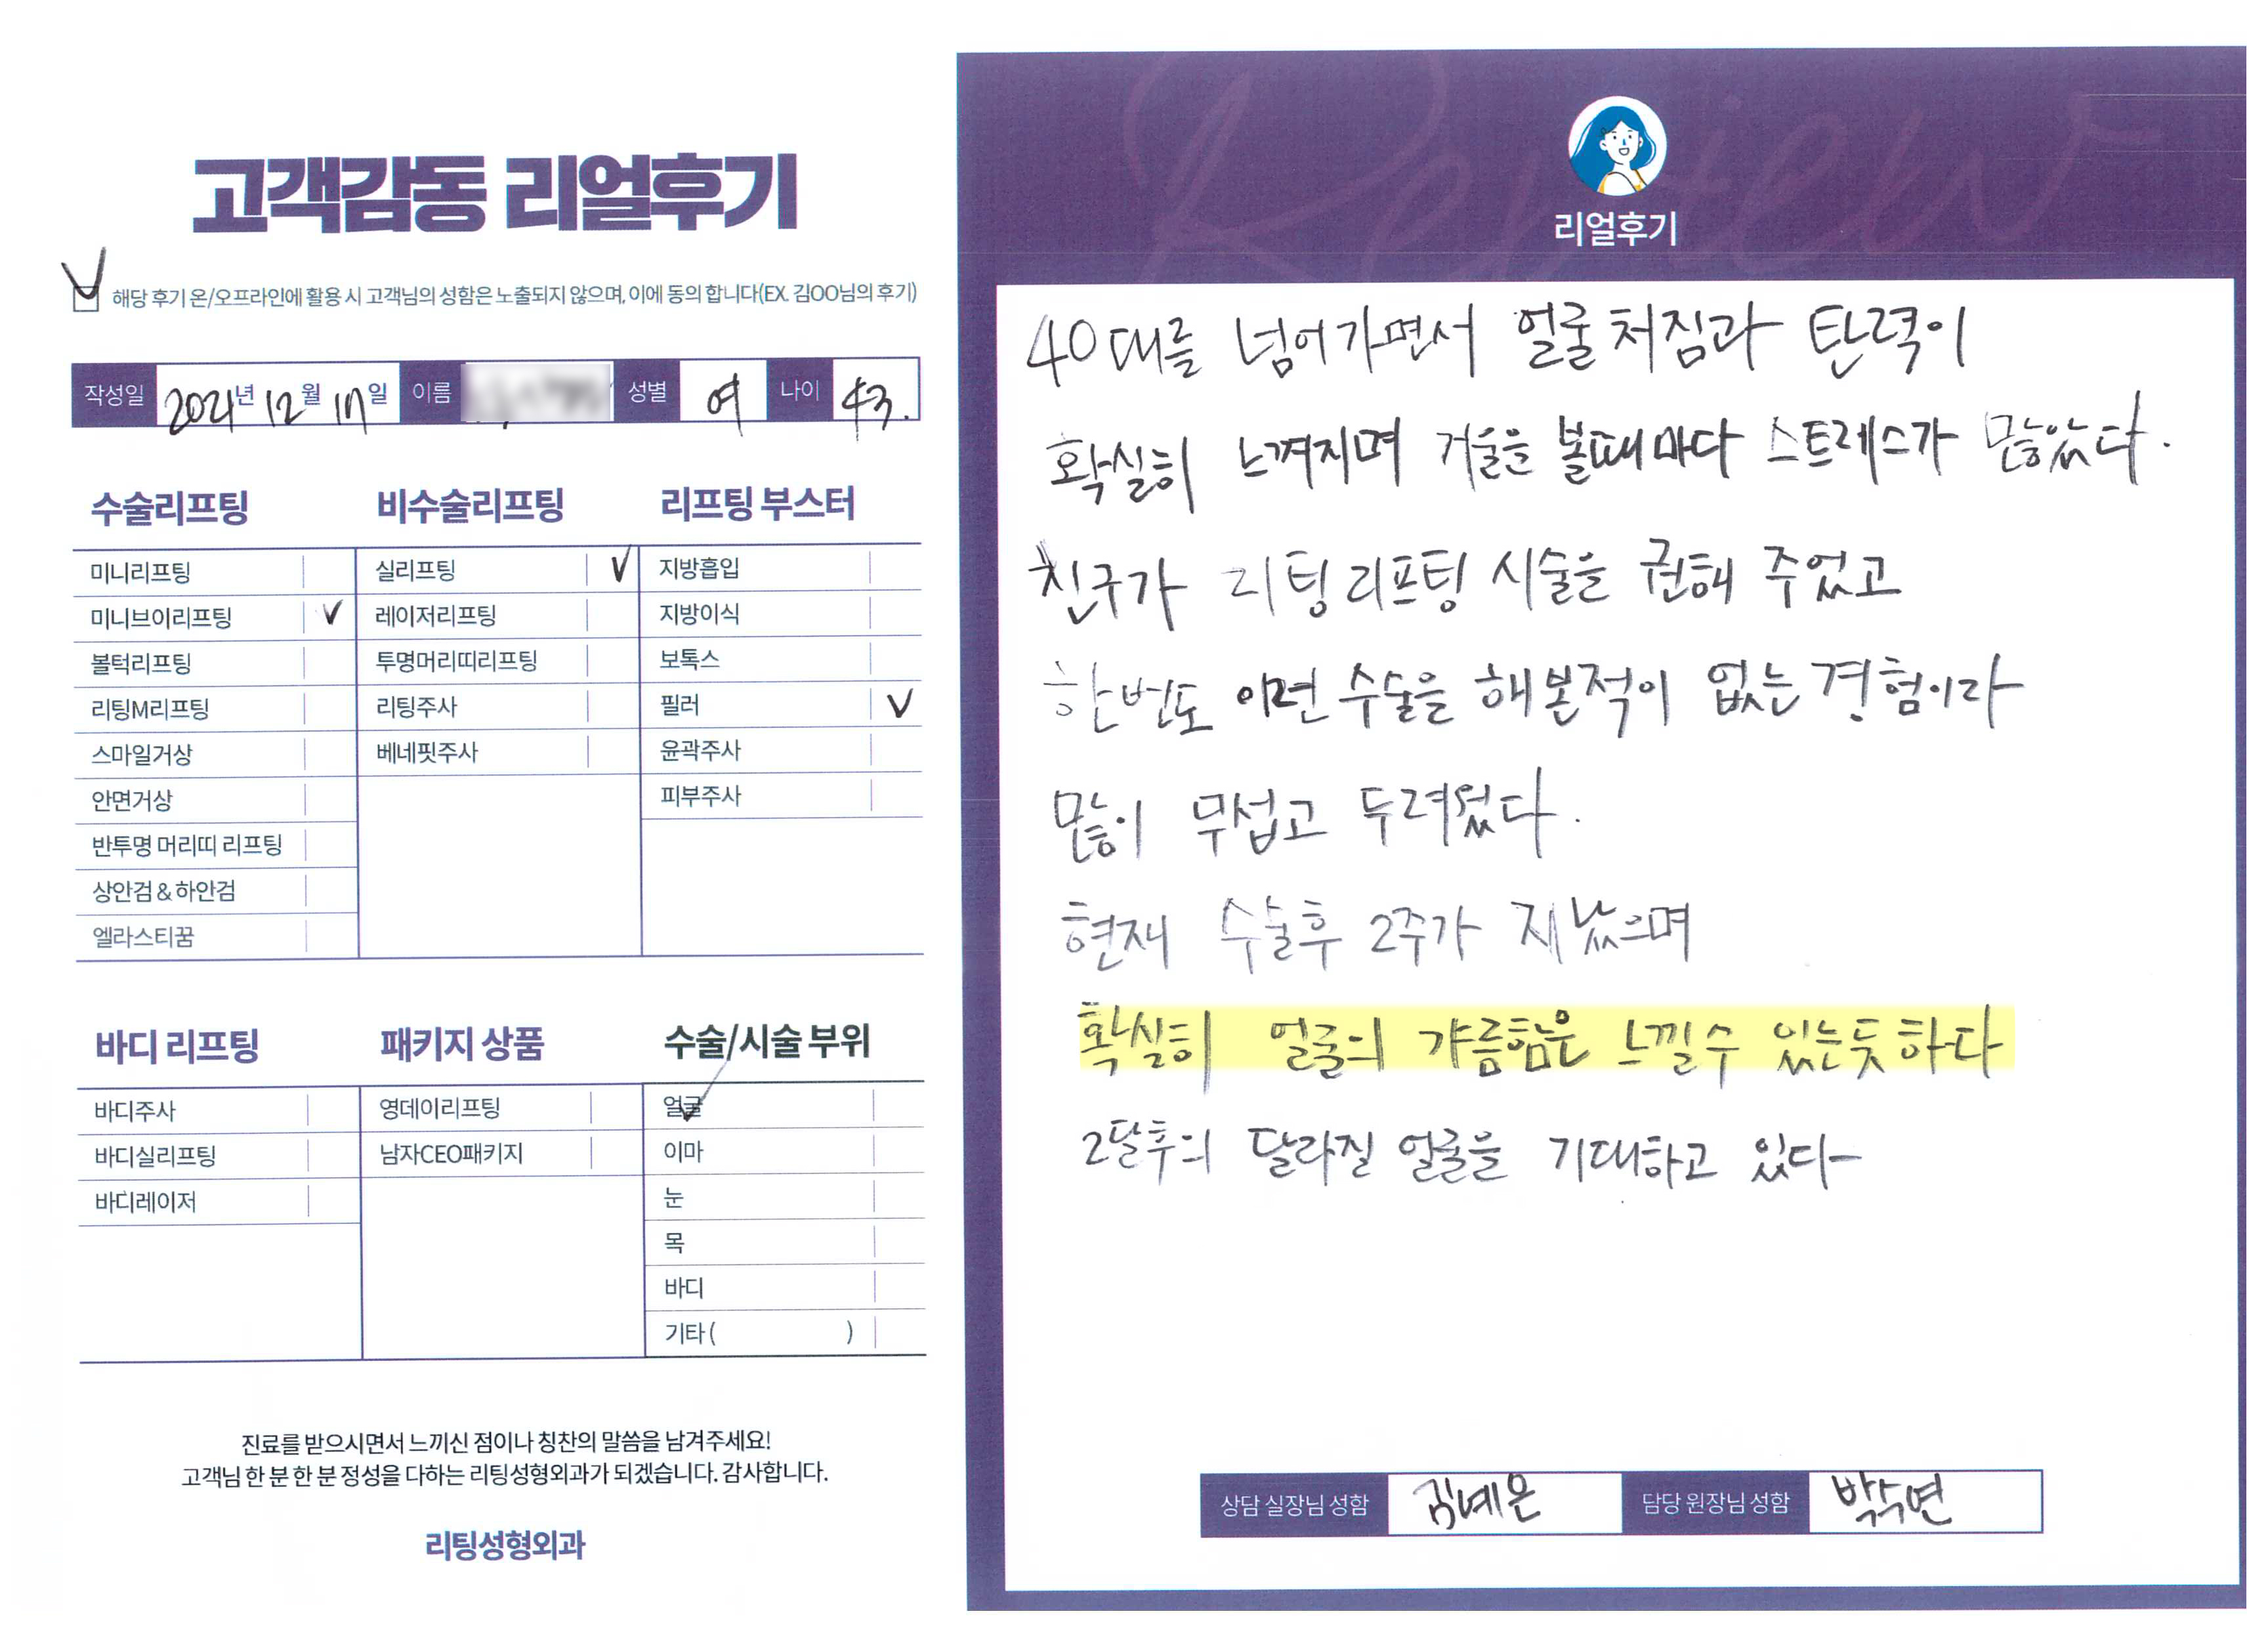 고객감동 리얼후기
해당 후기 온/오프라인에 활용 시 고객님의 성함은 노출되지 않으며, 이에 동의 합니다(EX. 김OO님의 후기)
작성일 2021년 12월 17일 이름 성별 여 나이 43.
수술리프팅
미니리프팅
미니브이리프팅
볼턱리프팅
리팅M리프팅
스마일거상
안면거상
반투명 머리띠 리프팅
상안검 & 하안검
엘라스티꿈
비수술리프팅
실리프팅
레이저리프팅
투명머리띠리프팅
리팅주사
베네핏주사
리프팅 부스터
지방흡입
지방이식
보톡스
필러
윤곽주사
피부주사
바디 리프팅
바디주사
바디실리프팅
바디레이저
패키지 상품
영데이리프팅
남자CEO패키지
수술/시술 부위
얼굴
이마
눈
목
바디
기타 ( )
진료를 받으시면서 느끼신 점이나 칭찬의 말씀을 남겨주세요!
고객님 한 분 한 분 정성을 다하는 리팅성형외과가 되겠습니다. 감사합니다.
리팅성형외과
Review
리얼후기
40대를 넘어가면서 얼굴 처짐과 탄력이
확실히 느껴지며 거울을 볼때마다 스트레스가 많았다.
친구가 리팅리프팅 시술을 권해 주었고
한번도 이런 수술을 해본적이 없는 경험이라
많이 무섭고 두려웠다.
현재 수술후 2주가 지났으며
확실히 얼굴의 갸름함은 느낄수 있는듯하다
2달후의 달라질 얼굴을 기대하고 있다
상담 실장님 성함 김예은 담당 원장님 성함 박수연